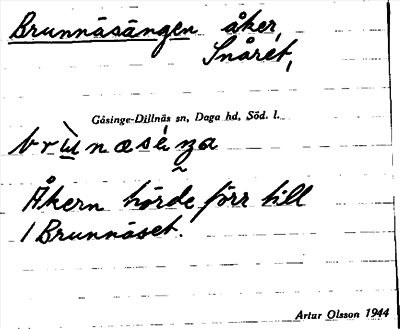 Brunnäsängen åker,
Snåret,
Gåsinge-Dillnäs sn, Daga hd, Söd. l.
Åkern hörde förr till
1 Brunnäset.
Artur Olsson 1944